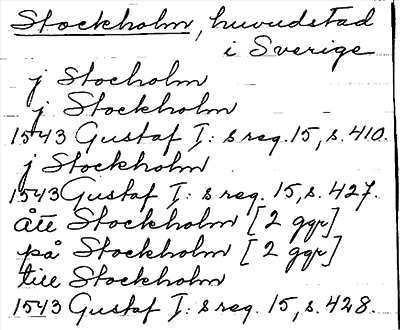 Stockholm, huvudstad
i Sverige
j Stocholm
j Stockholm
1543 Gustaf I: s reg. 15, s. 410.
j Stockholm
1543 Gustaf I: s reg. 15, s. 427.
ått Stockholm [2 ggr]
på Stockholm [2 ggr]
till Stockholm
1543 Gustaf I: s reg. 15, s. 428.